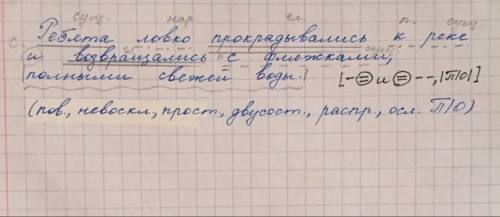 сущ. нар. гл. п. сущ.
с. Ребята ловко прокрадывались к реке
и возвращались с фляжками,
полными свежей воды. [-⊜и⊜--,|П/О|]
(пов., невоскл, прост., двусост., распр., осл. П/О)